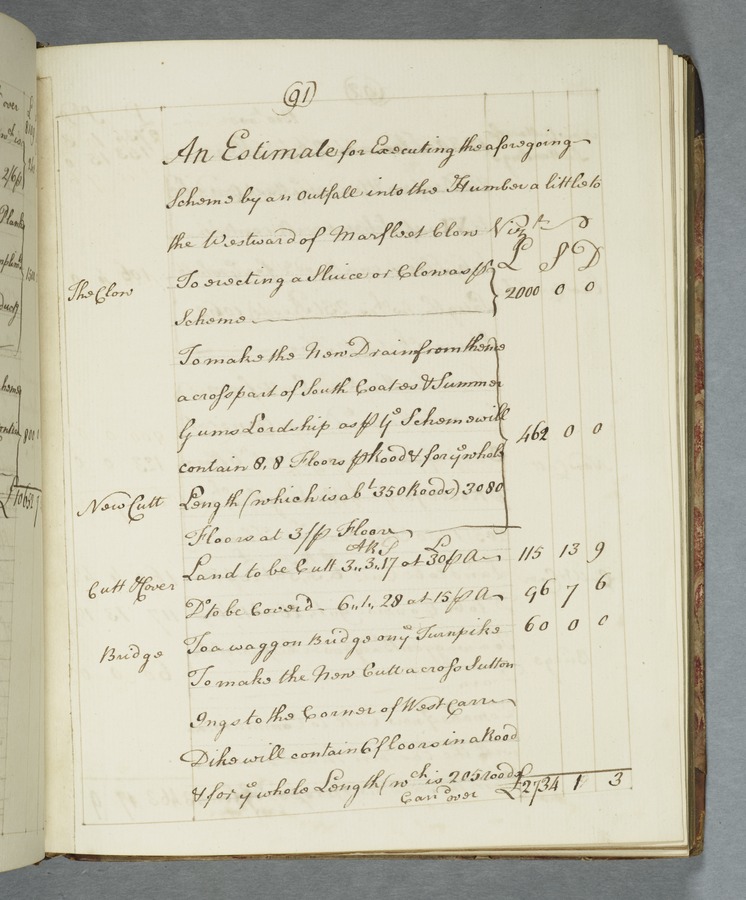 91
An Estimate for Executing the aforegoing
Scheme by an Outfall into the Humber a little to
the Westward of Marfleet Clow Vizt
£ S D
The Clow To erecting a Sluice or Clow as ⅌ 2000 0 0
Scheme
To make the New Drain from thence
across part of South Coates & Summer
Gums Lordship as ⅌ ye Scheme will
contain 8,8 Floors ⅌ Rood & for ye whole 462 0 0
New Cutt Length (which is abt 350 Roods) 3080
Floors at 3/⅌ Floor
A R S £
Land to be Cutt 3,,3,,17 at 30⅌ A 115 13 9
Cutt & Cover Do to be Coverd - 6,,1,,28 at 15⅌ A 96 7 6
Bridge To a waggon Bridge on ye Turnpike 60 0 0
To make the New Cutt across Sutton
Ings to the Corner of West Carr
Dike will contain 6 floors in a Rood
& for ye whole Length (wch is 205 roods
Carrd over £2734 1 3